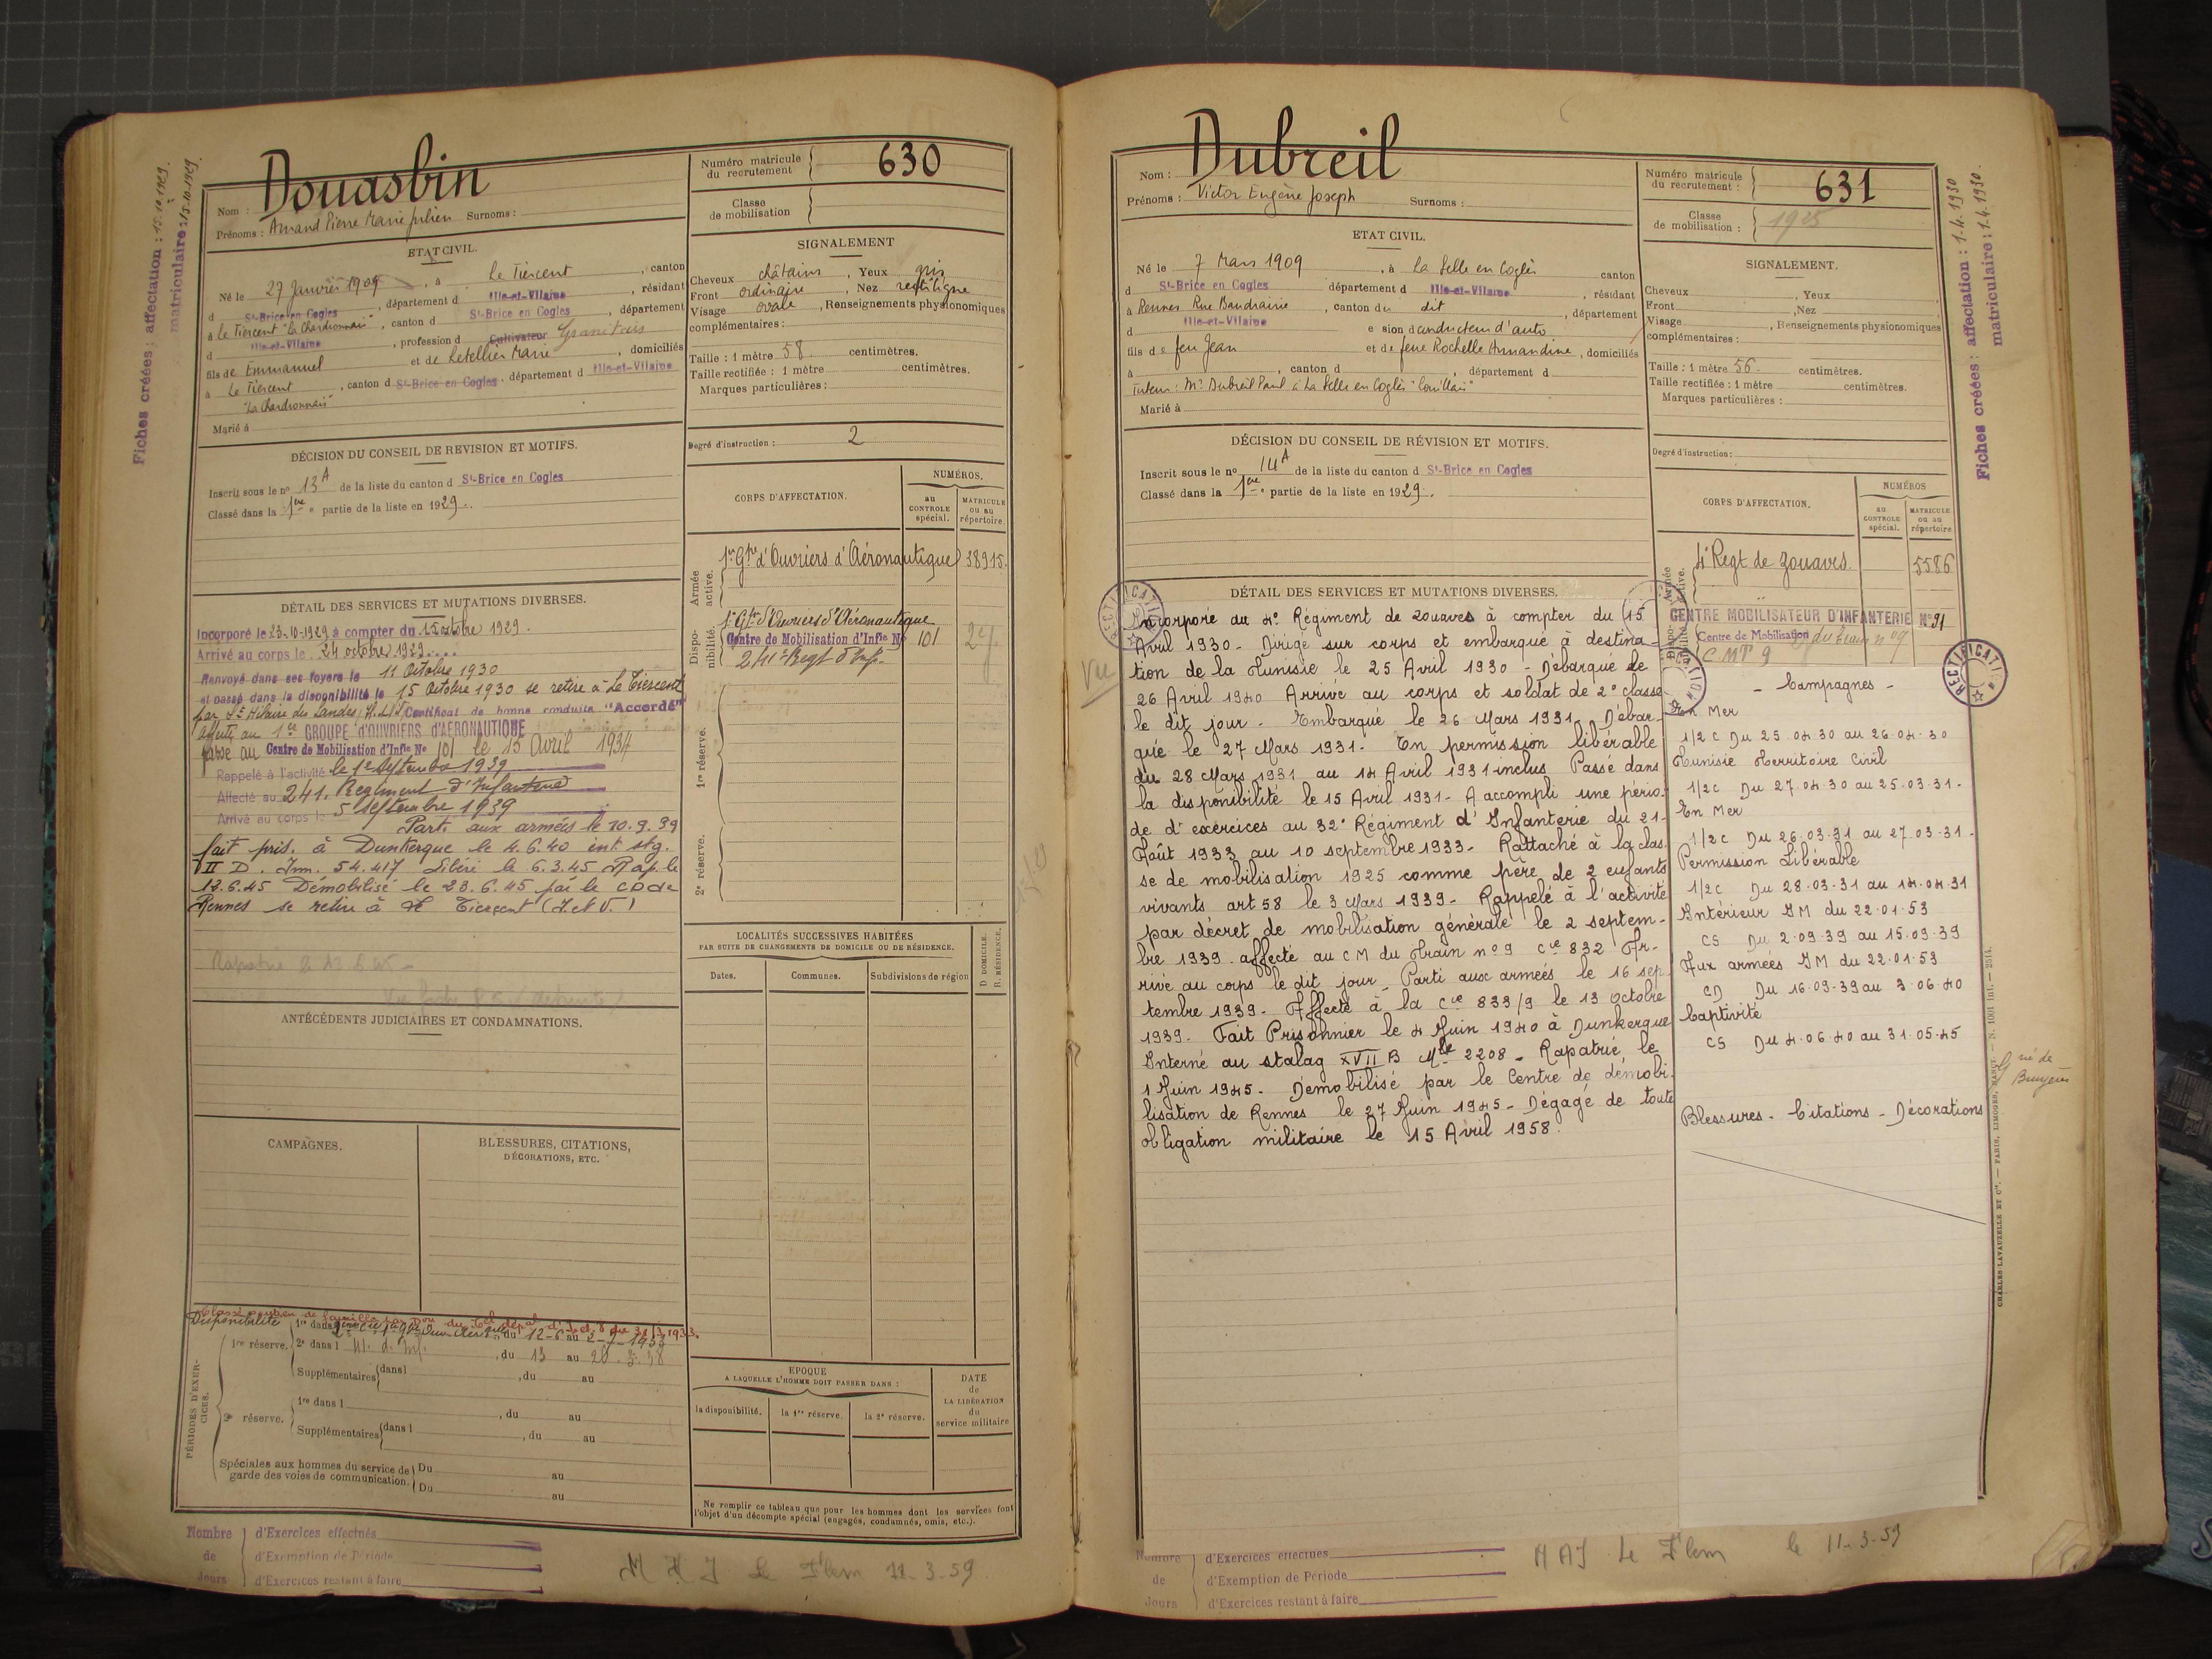 Fiches créées : affectation : 15.10.1929.
matriculaire : 15.10.1929.
Nom : Douasbin
Prénoms : Amand Pierre Marie Julien Surnoms :
Numéro matricule du recrutement 630
Classe de mobilisation
ETAT CIVIL.
Né le 27 Janvier 1909, à Le Tiercent, canton
d St-Brice en Cogles, département d Ille-et-Vilaine, résidant
à Le Tiercent "La Chardronnais", canton d St-Brice en Cogles, département
d Ille-et-Vilaine, profession d Cultivateur
fils de Emmanuel et de Letellier Marie, domiciliés
à Le Tiercent, canton d St-Brice en Cogles, département d Ille-et-Vilaine
"La Chardronnais"
Marié à
SIGNALEMENT
Cheveux châtains, Yeux gris
Front ordinaire, Nez rectiligne
Visage ovale, Renseignements physionomiques
complémentaires :
Taille : 1 mètre 58 centimètres.
Taille rectifiée : 1 mètre centimètres.
Marques particulières :
Degré d'instruction : 2
DÉCISION DU CONSEIL DE REVISION ET MOTIFS.
Inscrit sous le no 13 A de la liste du canton d St-Brice en Cogles
Classé dans la 1ere partie de la liste en 1929.
CORPS D'AFFECTATION.
NUMÉROS.
au CONTROLE spécial.
MATRICULE ou au répertoire.
Armée active.
1er Gpe d'Ouvriers d'Aéronautique 38915.
Disponibilité.
1er Gpe d'Ouvriers d'Aéronautique
Centre de Mobilisation d'Infie No 101
241e Regt d'Inf.
1re réserve.
2e réserve.
DÉTAIL DES SERVICES ET MUTATIONS DIVERSES.
Incorporé le 23-10-1929 à compter du 15 octobre 1929.
Arrivé au corps le 24 octobre 1929
Renvoyé dans ses foyers le 11 Octobre 1930
et passé dans la disponibilité le 15 Octobre 1930 se retire à Le Tiercent
par St Hilaire des Landes Certificat de bonne conduite "Accordé"
affecté au 1er GROUPE D'OUVRIERS D'AÉRONAUTIQUE
passé au Centre de Mobilisation d'Infie No 101 le 15 Avril 1934
Rappelé à l'activité le 1er Septembre 1939
Affecté au 241. Regiment d'Infanterie
Arrivé au corps le 5 Septembre 1939
Parti aux armées le 10.9.39
fait pris. à Dunkerque le 4.6.40 int. stg.
II D. Imm. 54.417 Libéré le 6.3.45 Rap. le
12.6.45 Démobilisé le 23.6.45 par le CD de
Rennes se retire à Tiercent (I. et V.)
ANTÉCÉDENTS JUDICIAIRES ET CONDAMNATIONS.
LOCALITÉS SUCCESSIVES HABITÉES
PAR SUITE DE CHANGEMENTS DE DOMICILE OU DE RÉSIDENCE.
Dates. Communes. Subdivisions de région
D DOMICILE. R. RÉSIDENCE.
CAMPAGNES.
BLESSURES, CITATIONS, DÉCORATIONS, ETC.
Disponibilité
PÉRIODES D'EXERCICES.
1re réserve. 1re dans du 12-6 au 2-7-1933
2e dans l , du 13 au 20.3.38
Supplémentaires dans l , du au
2e réserve. 1re dans l , du au
Supplémentaires dans l , du au
Spéciales aux hommes du service de garde des voies de communication. Du au
Du au
EPOQUE
A LAQUELLE L'HOMME DOIT PASSER DANS :
la disponibilité. la 1re réserve. la 2e réserve.
DATE de LA LIBÉRATION du service militaire
Ne remplir ce tableau que pour les hommes dont les services font
l'objet d'un décompte spécial (engagés, condamnés, omis, etc.).
Nombre de Jours
d'Exercices effectués
d'Exemption de Période
d'Exercices restant à faire
M A J Le Flem 11-3-59
Nom : Dubreil
Prénoms : Victor Eugène Joseph Surnoms :
Numéro matricule du recrutement : 631
Classe de mobilisation : 1925
Fiches créées : affectation : 1.4.1930
matriculaire : 1.4.1930.
ETAT CIVIL.
Né le 7 Mars 1909, à La Selle en Coglès canton
d St-Brice en Cogles département d Ille-et-Vilaine, résidant
à Rennes Rue Baudrairie, canton du dit, département
d Ille-et-Vilaine e sion d conducteur d'auto
fils de feu Jean et de feue Rochelle Amandine, domiciliés
à , canton d , département d
Tuteur : Mr Dubreil Paul à La Selle en Coglès
Marié à
SIGNALEMENT.
Cheveux , Yeux
Front , Nez
Visage , Renseignements physionomiques
complémentaires :
Taille : 1 mètre 56 centimètres.
Taille rectifiée : 1 mètre centimètres.
Marques particulières :
Degré d'instruction :
DÉCISION DU CONSEIL DE RÉVISION ET MOTIFS.
Inscrit sous le no 14 A de la liste du canton d St-Brice en Cogles
Classé dans la 1ere partie de la liste en 1929.
CORPS D'AFFECTATION.
NUMÉROS
au CONTROLE spécial.
MATRICULE ou au répertoire
Armée active.
4e Regt de Zouaves. 5586
CENTRE MOBILISATEUR D'INFANTERIE No 91
Centre de Mobilisation du train no 9
RECTIFICATION
DÉTAIL DES SERVICES ET MUTATIONS DIVERSES.
Vu
Incorporé au 4e Régiment de zouaves à compter du 15
Avril 1930 - Dirigé sur corps et embarqué à destina-
tion de la Tunisie le 25 Avril 1930 - Débarqué le
26 Avril 1940 Arrivé au corps et soldat de 2e classe
le dit jour - Embarqué le 26 Mars 1931. Débar-
qué le 27 Mars 1931 - En permission libérable
du 28 Mars 1931 au 14 Avril 1931 inclus Passé dans
la disponibilité le 15 Avril 1931 - A accompli une pério-
de d'exercices au 32e Régiment d'Infanterie du 21-
Août 1933 au 10 septembre 1933 - Rattaché à la clas.
se de mobilisation 1925 comme père de 2 enfants
vivants art 58 le 3 Mars 1939 - Rappelé à l'activité
par décret de mobilisation générale le 2 septem-
bre 1939 - affecté au CM du Train no 9 Cie 832 Ar-
rivé au corps le dit jour - Parti aux armées le 16 sep-
tembre 1939 - Affecté à la Cie 833/9 le 13 octobre
1939. Fait Prisonnier le 4 Juin 1940 à Dunkerque
Interné au stalag XVII B Mle 2208 - Rapatrié le
1 Juin 1945 - Démobilisé par le Centre de démobi-
lisation de Rennes le 27 Juin 1945 - Dégagé de toute
obligation militaire le 15 Avril 1958.
- Campagnes -
En Mer
1/2 C Du 25.04.30 au 26.04.30
Tunisie Territoire Civil
1/2C Du 27.04.30 au 25.03.31-
En Mer
1/2C Du 26.03.31 au 27.03.31-
Permission Libérable
1/2C Du 28.03.31 au 14.04.31
Intérieur IM du 22.01.53
CS Du 2.09.39 au 15.09.39
Aux armées IM du 22.01.53
CD Du 16.09.39 au 3.06.40
Captivité
CS Du 4.06.40 au 31.05.45
Blessures - Citations - Décorations
CHARLES LAVAUZELLE ET Cie. — PARIS, LIMOGES, NANCY.
Nombre de Jours
d'Exercices effectués
d'Exemption de Période
d'Exercices restant à faire
MAJ Le Flem le 11-3-59